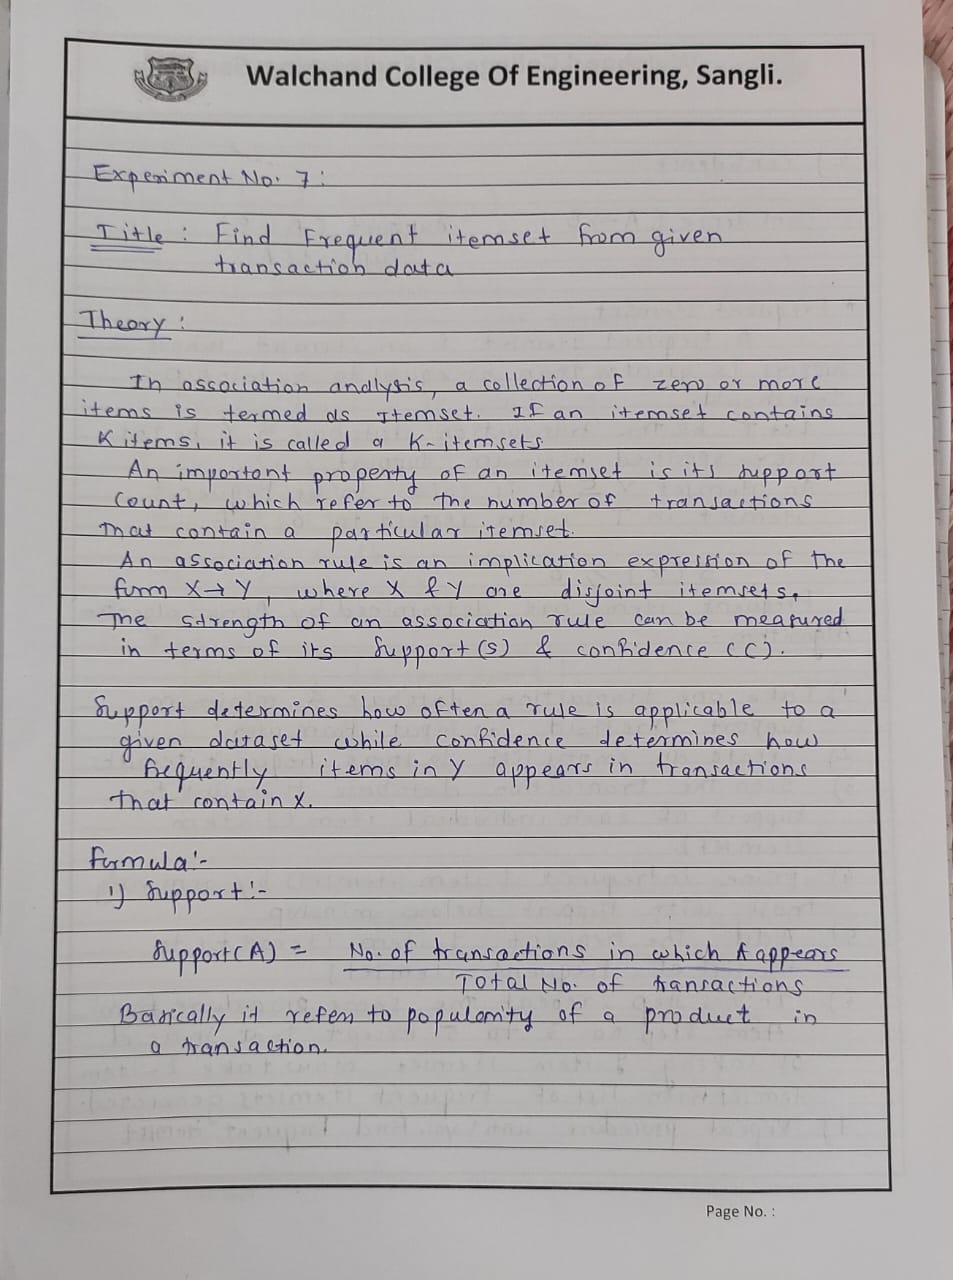 Walchand College Of Engineering, Sangli.
Experiment No. 7 :
Title : Find Frequent itemset from given
transaction data
Theory :
In association analysis, a collection of zero or more
items is termed as Itemset. If an itemset contains
K items, it is called a K-itemsets
An important property of an itemset is its support
Count, which refer to the number of transactions
that contain a particular itemset.
An association rule is an implication expression of the
form X→Y, where X & Y are disjoint itemsets,
The strength of an association rule can be measured
in terms of its Support (s) & confidence (C).
Support determines how often a rule is applicable to a
given dataset while confidence determines how
frequently items in Y appears in transactions
that contain X.
Formula:-
1) Support:-
Support(A) = No. of transactions in which A appears
Total No. of transactions
Basically it refers to popularity of a product in
a transaction.
Page No. :